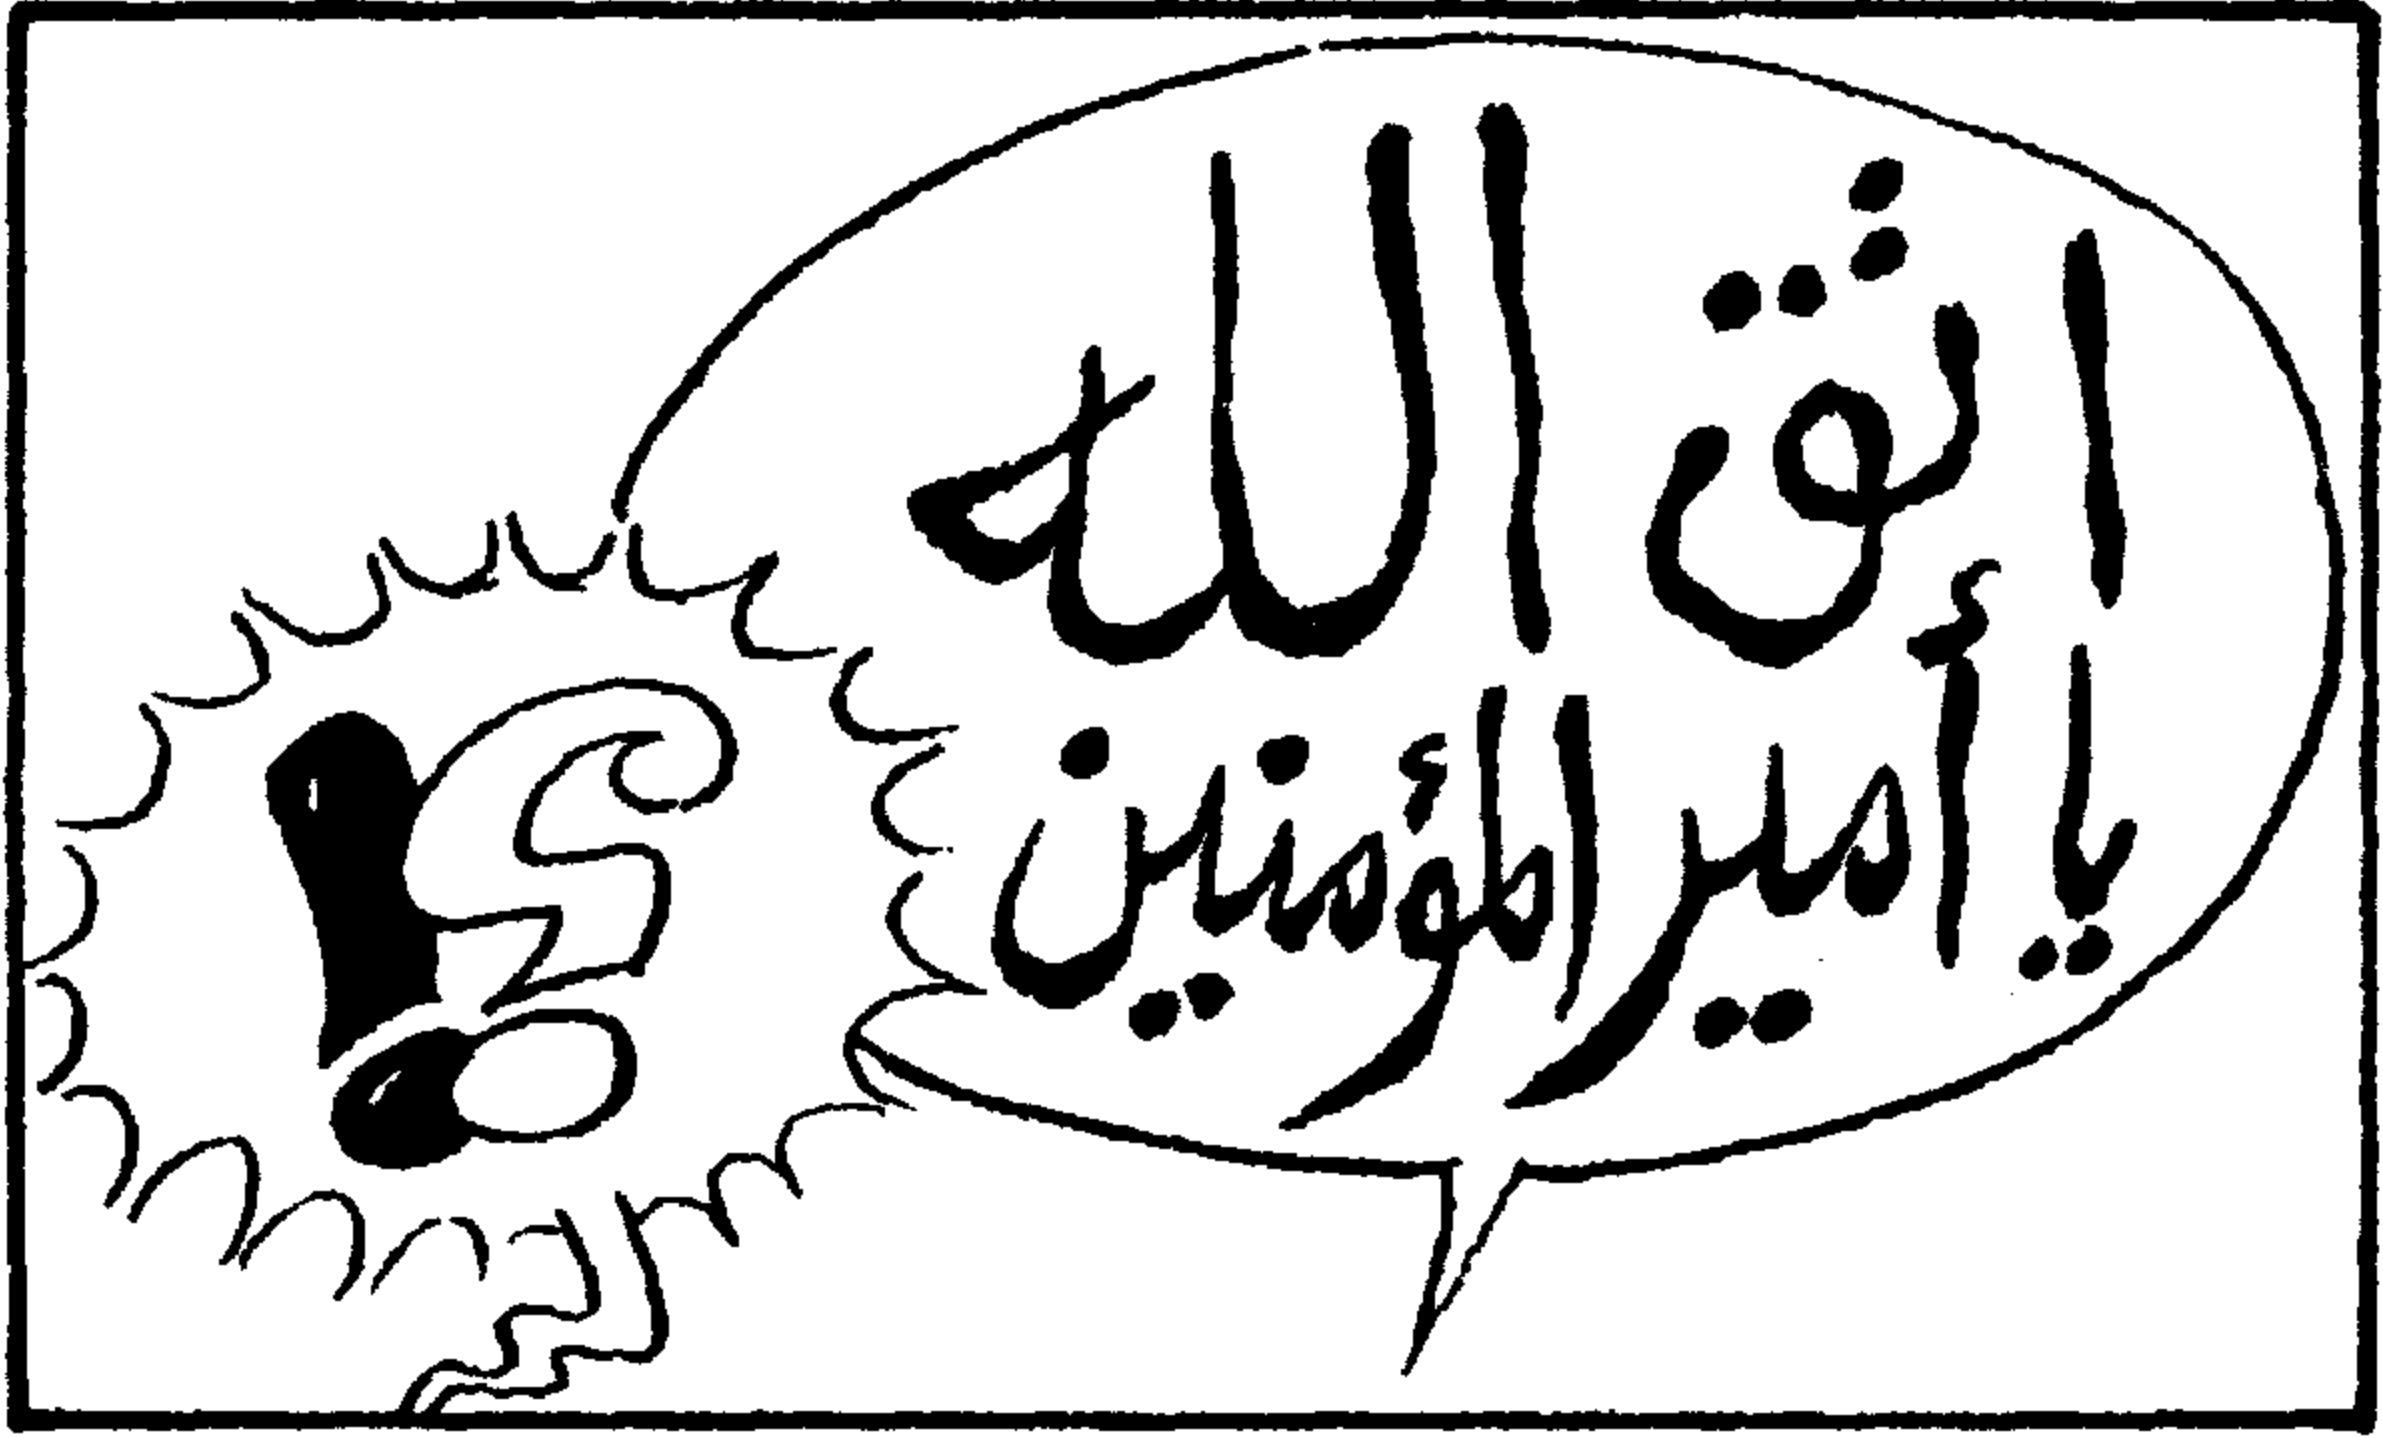 اتق الله
يا أمير المؤمنين
؟!